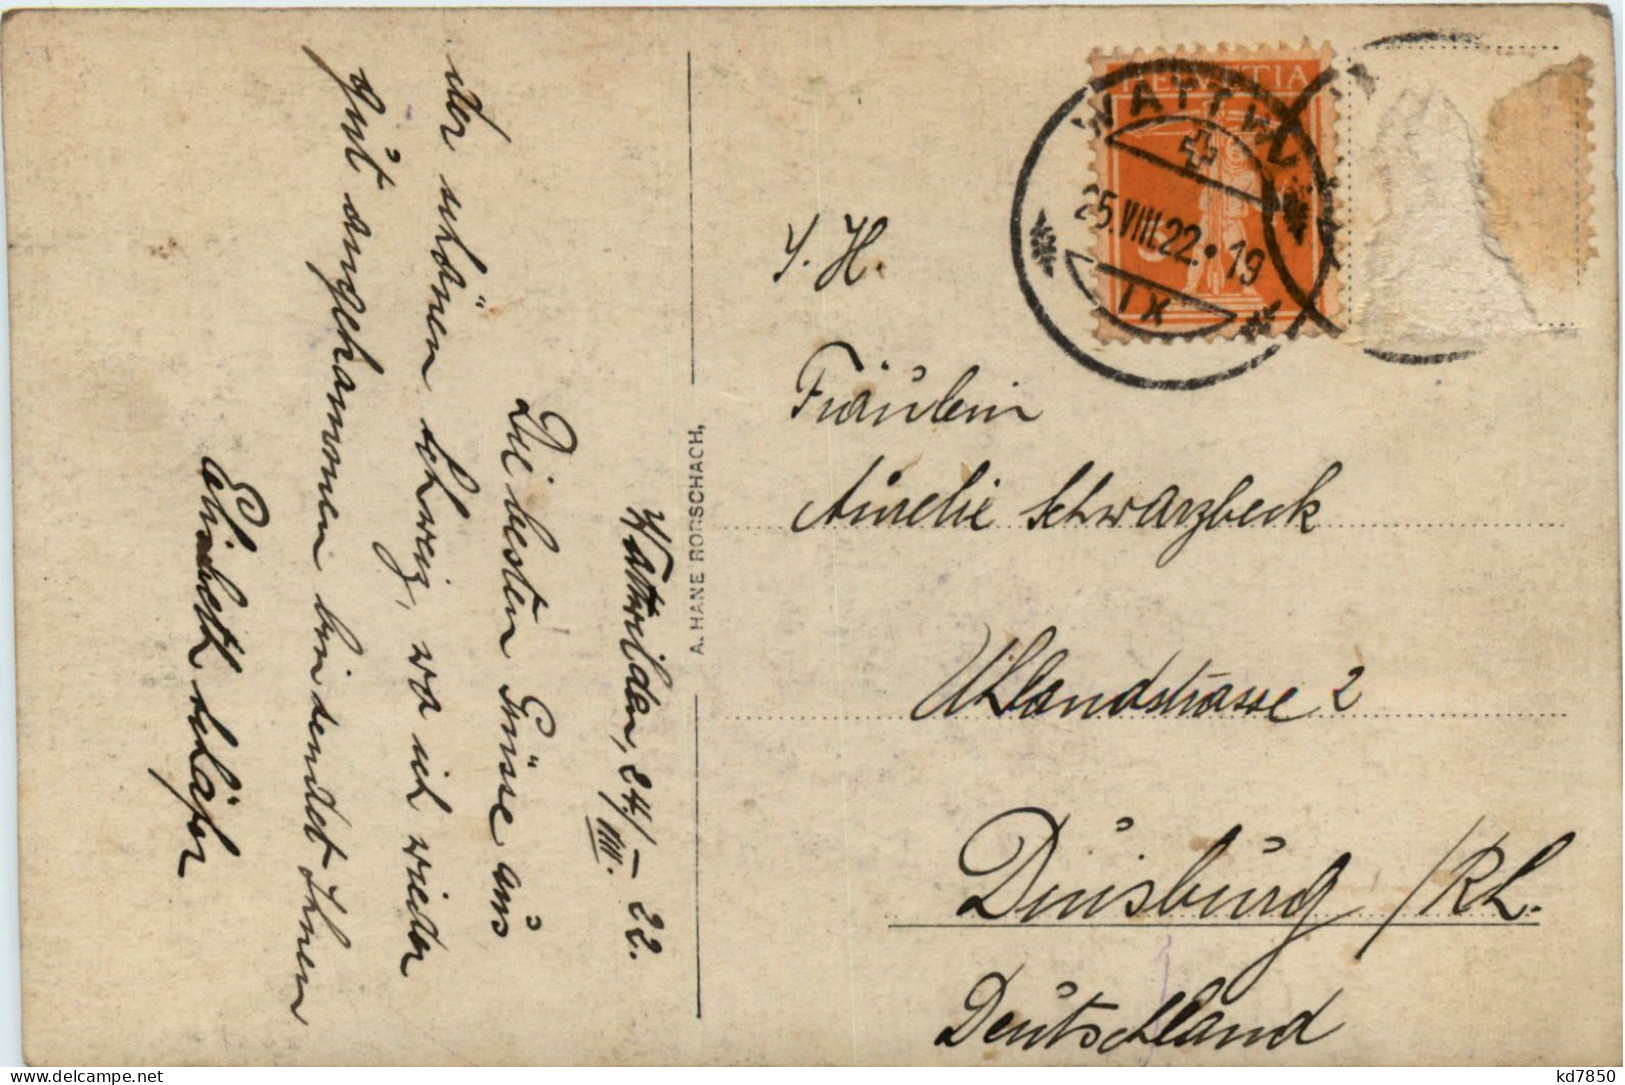 Wattwil den, 24./VIII. 22.
Die besten Grüsse aus
der schönen Schweiz, wo ich wieder
gut angekommen bin sendet Ihnen
Elisabeth Schläfer
A. HANE RORSCHACH,
HELVETIA
WATTWIL
25.VIII.22.19
IX
S. H.
Fräulein
Aurelie Schwarzbeck
Uhlandstrasse 2
Duisburg /Rh.
Deutschland
kd7850